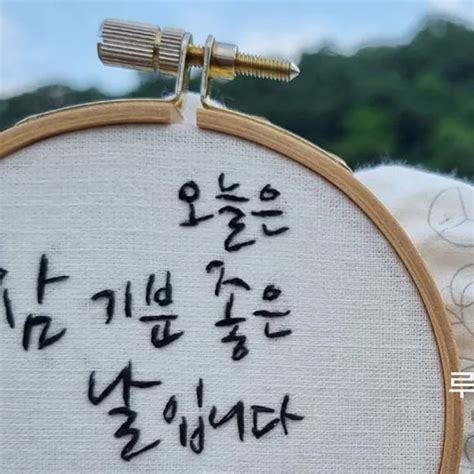 오늘은
참 기분 좋은
날입니다
루